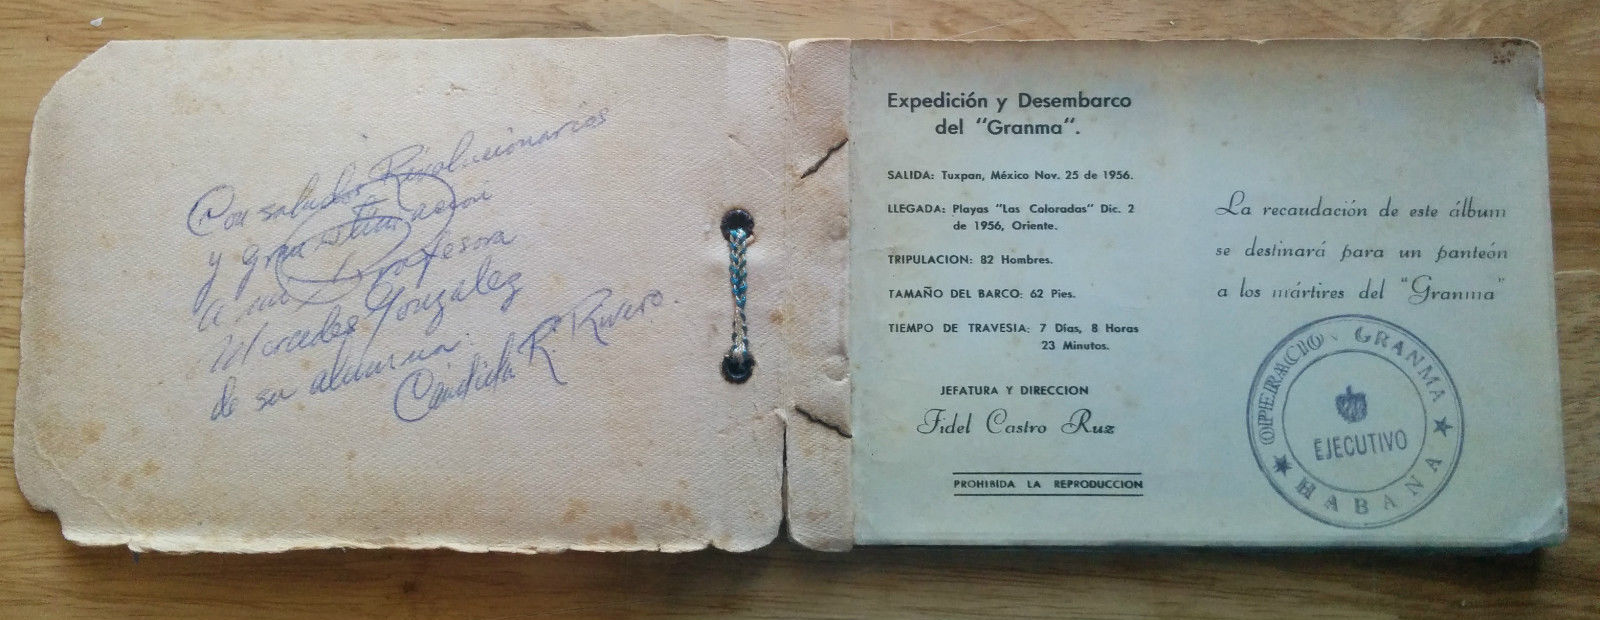 Con saludos Revolucionarios
y gran estimacion
a mi Profesora
Mercedes Gonzalez
de su alumna:
Cándida R. Rivero.
Expedición y Desembarco
del "Granma".
SALIDA: Tuxpan, México Nov. 25 de 1956.
LLEGADA: Playas "Las Coloradas" Dic. 2
de 1956, Oriente.
TRIPULACION: 82 Hombres.
TAMAÑO DEL BARCO: 62 Pies.
TIEMPO DE TRAVESIA: 7 Días, 8 Horas
23 Minutos.
JEFATURA Y DIRECCION
Fidel Castro Ruz
PROHIBIDA LA REPRODUCCION
La recaudación de este álbum
se destinará para un panteón
a los mártires del "Granma"
GRANMA
EJECUTIVO
HABANA